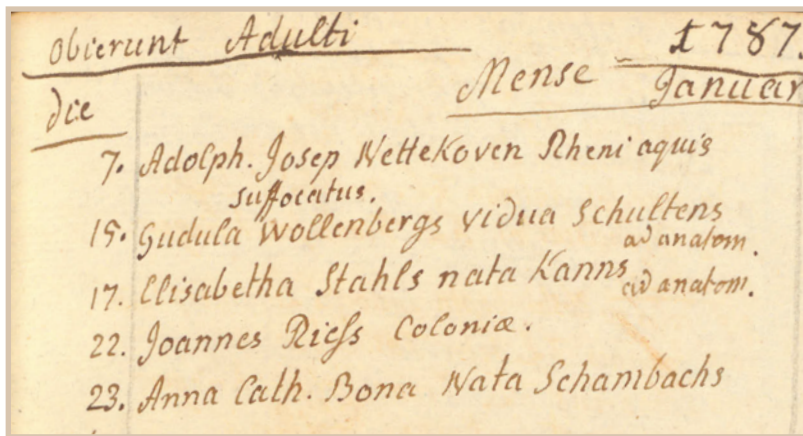 obierunt Adulti 1787.
Mense Januar
die
7. Adolph. Josep Nettekoven Rheni aquis
suffocatus.
15. Gudula Wollenbergs vidua Schultens
ad anatom.
17. Elisabetha Stahls nata Kanns
ad anatom.
22. Joannes Rieſs Coloniæ.
23. Anna Cath. Bona Nata Schambachs